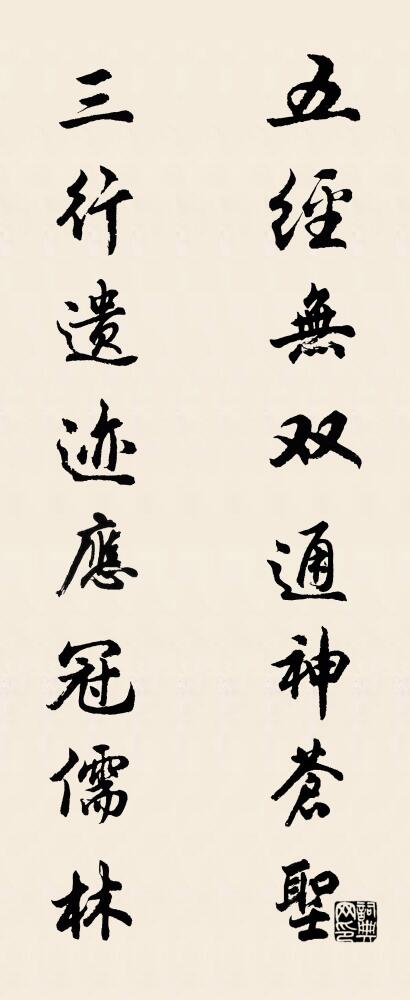 五經無双通神蒼聖
三行遗迹應冠儒林
詞典網印